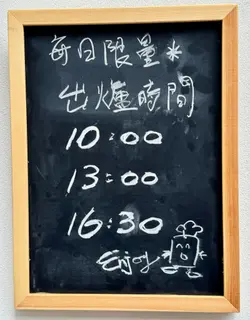 每日限量*
出爐時間
10:00
13:00
16:30
Enjoy